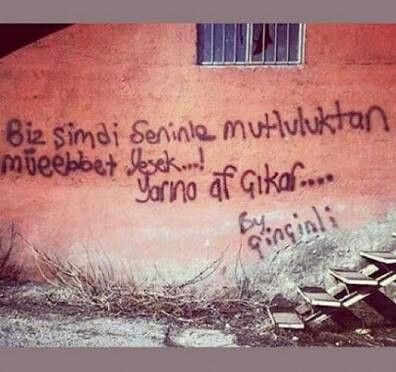 Biz şimdi Seninle mutluluktan
müeebbet yesek...!
Yarına af Çıkar....
By
Çinçinli